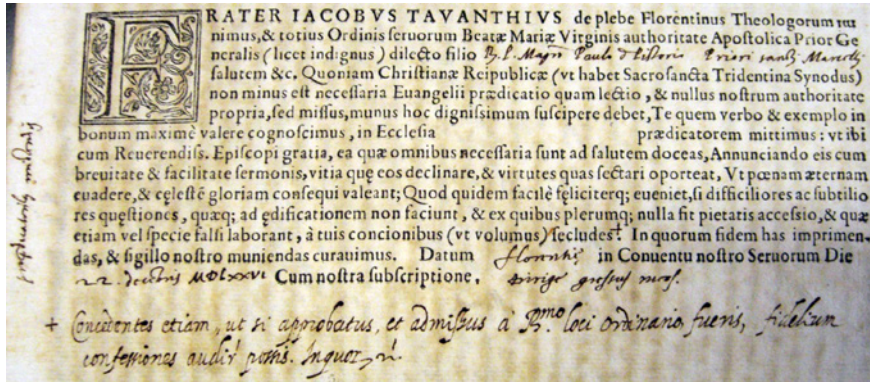 FRATER IACOBVS TAVANTHIVS de plebe Florentinus Theologorum mi
nimus,& totius Ordinis seruorum Beatæ Mariæ Virginis authoritate Apostolica Prior Ge
neralis (licet indignus) dilecto filio Paulo Priori
salutem &c. Quoniam Christianæ Reipublicæ (vt habet Sacrosancta Tridentina Synodus)
non minus est necessaria Euangelii prædicatio quam lectio, & nullus nostrum authoritate
propria, sed missus, munus hoc dignissimum suscipere debet, Te quem verbo & exemplo in
bonum maximè valere cognoscimus, in Ecclesia prædicatorem mittimus: vt ibi
cum Reuerendiss. Episcopi gratia, ea quæ omnibus necessaria sunt ad salutem doceas, Annunciando eis cum
breuitate & facilitate sermonis, vitia quę eos declinare, & virtutes quas sectari oporteat, Vt pœnam æternam
euadere, & cęlestē gloriam consequi valeant; Quod quidem facilè fęliciterq; eueniet, si difficiliores ac subtilio
res quęstiones, quæq; ad ędificationem non faciunt, & ex quibus plerumq; nulla fit pietatis accessio, & quæ
etiam vel specie falsi laborant, à tuis concionibus (vt volumus) secludes+. In quorum fidem has imprimen
das, & sigillo nostro muniendas curauimus. Datum in Conuentu nostro Seruorum Die
22. MDLXXVI Cum nostra subscriptione. Dirige gressus meos.
+ Concedentes etiam, ut si approbatus, et admissus à R.mo loci ordinario fueris, fidelium
confessiones audir possis.